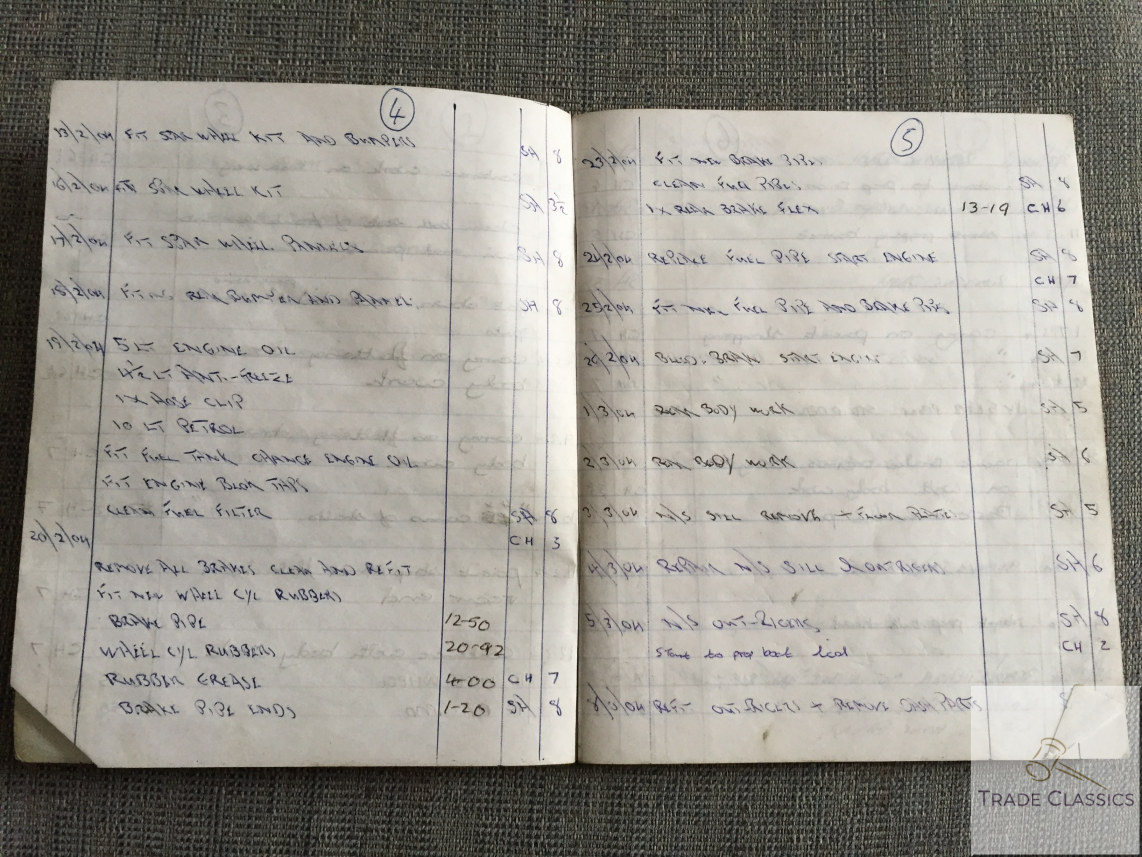 4
13/2/04 FIT STAR WHEEL KIT AND BUMPERS
SA 8
16/2/04 STAR WHEEL KIT
SA 3½
17/2/04 FIT STAR WHEEL
SA 8
18/2/04 REAR BUMPER AND PANEL
SA 8
19/2/04 5 LT ENGINE OIL
4½ LT ANTI-FREEZE
1 X HOSE CLIP
10 LT PETROL
FIT FUEL TANK CHANGE ENGINE OIL
FIT ENGINE TAPS
CLEAN FUEL FILTER SA 8
20/2/04 CH 3
REMOVE ALL BRAKES CLEAN AND REFIT
FIT NEW WHEEL CYL RUBBERS
BRAKE PIPE 12-50
WHEEL CYL RUBBERS 20-92
RUBBER GREASE 4-00 CH 7
BRAKE PIPE ENDS 1-20 SA 8
5
23/2/04 FIT NEW BRAKE PIPE
CLEAN FUEL PIPES SA 8
1 X REAR BRAKE FLEX 13-19 CH 6
24/2/04 REPLACE FUEL PIPE START ENGINE SA 8
CH 7
25/2/04 FIT NEW FUEL PIPE AND BRAKE PIPES SA 8
26/2/04 BLEED BRAKE START ENGINE SA 7
1/3/04 REAR BODY WORK SA 5
2/3/04 REAR BODY WORK SA 6
3/3/04 N/S SILL REMOVE + SA 5
4/3/04 REPAIR N/S SILL + OUTRIGGERS SA 6
5/3/04 N/S OUT-RIGGERS SA 8
Start to prep boot lid CH 2
8/3/04 REFIT OUTRIGGERS + REMOVE 8
TRADE CLASSICS